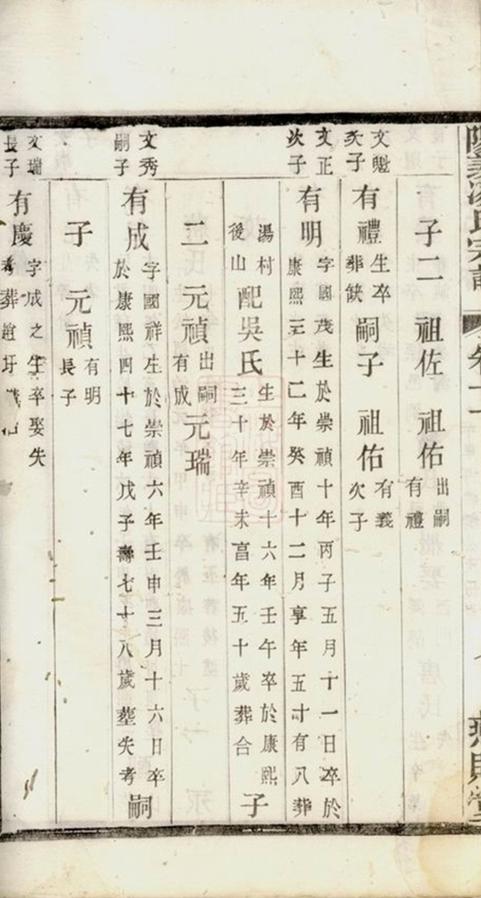 氏宗譜
子二 祖佐 祖佑 出嗣有禮
文魁次子 有禮 生卒葬缺 嗣子 祖佑 有義次子
文正次子 有明 字國茂生於崇禎十年丙子五月十一日卒於康熙三十二年癸酉十二月享年五十有八葬
湯村後山 配吳氏 生於崇禎十六年壬午卒於康熙三十年辛未富年五十歲葬合 子
二 元禎 出嗣有成 元瑞
文秀嗣子 有成 字國祥生於崇禎六年壬申三月十六日卒於康熙四十七年戊子壽七十八歲塟失考 嗣
子 元禎 有明長子
文瑞長子 有慶 字成之生卒娶失考葬趙圩